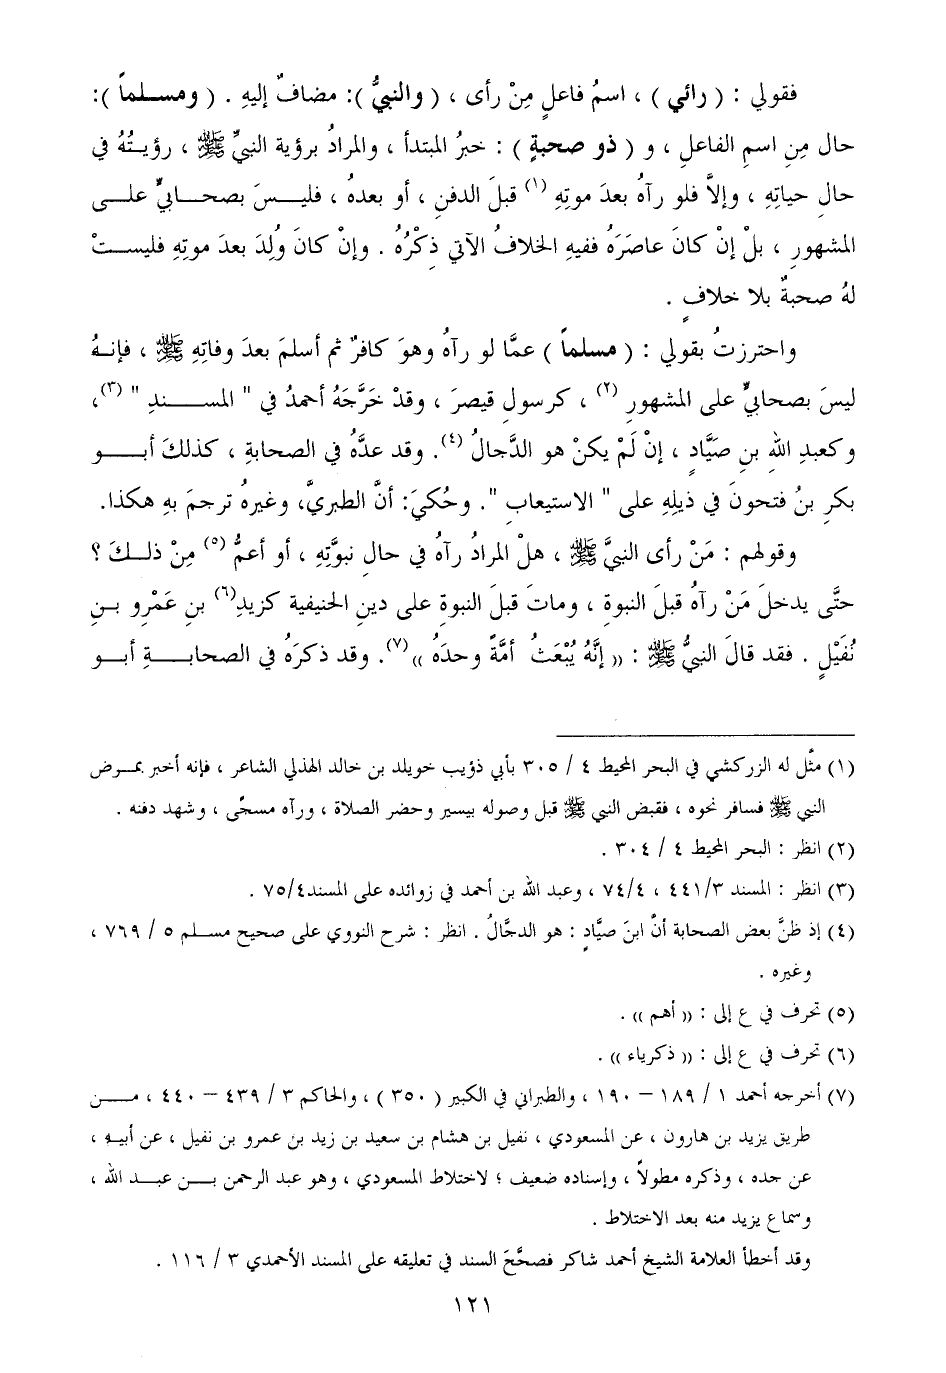 فقولي : ( رائي ) ، اسمُ فاعلٍ مِنْ رأى ، ( والنبيُّ ): مضافٌ إليهِ . ( ومسلماً ):
حال مِنِ اسمِ الفاعلِ ، و ( ذو صحبة ) : خبرُ المبتدأ ، والمرادُ برؤية النبيِّ ﷺ ، رؤيتُهُ في
حالِ حياتِهِ ، وإلاَّ فلو رآهُ بعدَ موتِهِ (١) قبلَ الدفنِ ، أو بعدهُ ، فليسَ بصحابيٍّ على
المشهورِ ، بلْ إنْ كانَ عاصَرَهُ ففيهِ الخلافُ الآتي ذِكْرُهُ . وإنْ كانَ وُلِدَ بعدَ موتِهِ فليستْ
لهُ صحبةٌ بلا خلافٍ .
واحترزتُ بقولي : ( مسلماً ) عمَّا لو رآهُ وهوَ كافرٌ ثم أسلمَ بعدَ وفاتِهِ ﷺ ، فإنهُ
ليسَ بصحابيٍّ على المشهورِ (٢) ، كرسولِ قيصرَ ، وقدْ خَرَّجَهُ أحمدُ في " المسندِ " (٣)،
وكعبدِ اللهِ بنِ صَيَّادٍ ، إنْ لَمْ يكنْ هو الدَّجالُ (٤). وقد عدَّهُ في الصحابةِ ، كذلكَ أبو
بكرِ بنُ فتحونَ في ذيلِهِ على " الاستيعابِ ". وحُكيَ: أنَّ الطبريَّ، وغيرهُ ترجمَ بهِ هكذا.
وقولهم : مَنْ رأى النبيَّ ﷺ ، هلْ المرادُ رآهُ في حالِ نبوَّتِهِ ، أو أعمُّ (٥) مِنْ ذلكَ ؟
حتَّى يدخلَ مَنْ رآهُ قبلَ النبوةِ ، وماتَ قبلَ النبوةِ على دينِ الحنيفية كزيدِ(٦) بنِ عَمْرِو بنِ
نُفَيْلٍ . فقد قالَ النبيُّ ﷺ : (( إنَّهُ يُبْعَثُ أمَّةً وحدَهُ ))(٧). وقد ذكرَهُ في الصحابةِ أبو
(١) مثّل له الزركشي في البحر المحيط ٤ / ٣٠٥ بأبي ذؤيب خويلد بن خالد الهذلي الشاعر ، فإنه أخبر بمرض
النبي ﷺ فسافر نحوه ، فقبض النبي ﷺ قبل وصوله بيسير وحضر الصلاة ، ورآه مسجًى ، وشهد دفنه .
(٢) انظر : البحر المحيط ٤ / ٣٠٤ .
(٣) انظر : المسند ٣/ ٤٤١ ، ٧٤/٤ ، وعبد الله بن أحمد في زوائده على المسند ٧٥/٤ .
(٤) إذ ظنَّ بعض الصحابة أنَّ ابنَ صيَّادٍ : هو الدجَّالُ . انظر : شرح النووي على صحيح مسلم ٥ / ٧٦٩ ،
وغيره .
(٥) تحرف في ع إلى : (( أهم )) .
(٦) تحرف في ع إلى : (( ذكرياء )) .
(٧) أخرجه أحمد ١ / ١٨٩ – ١٩٠ ، والطبراني في الكبير ( ٣٥٠ ) ، والحاكم ٣ / ٤٣٩ – ٤٤٠ ، من
طريق يزيد بن هارون ، عن المسعودي ، نفيل بن هشام بن سعيد بن زيد بن عمرو بن نفيل ، عن أبيه ،
عن جده ، وذكره مطولاً ، وإسناده ضعيف ؛ لاختلاط المسعودي ، وهو عبد الرحمن بن عبد الله ،
وسماع يزيد منه بعد الاختلاط .
وقد أخطأ العلامة الشيخ أحمد شاكر فصحَّحَ السند في تعليقه على المسند الأحمدي ٣ / ١١٦ .
١٢١